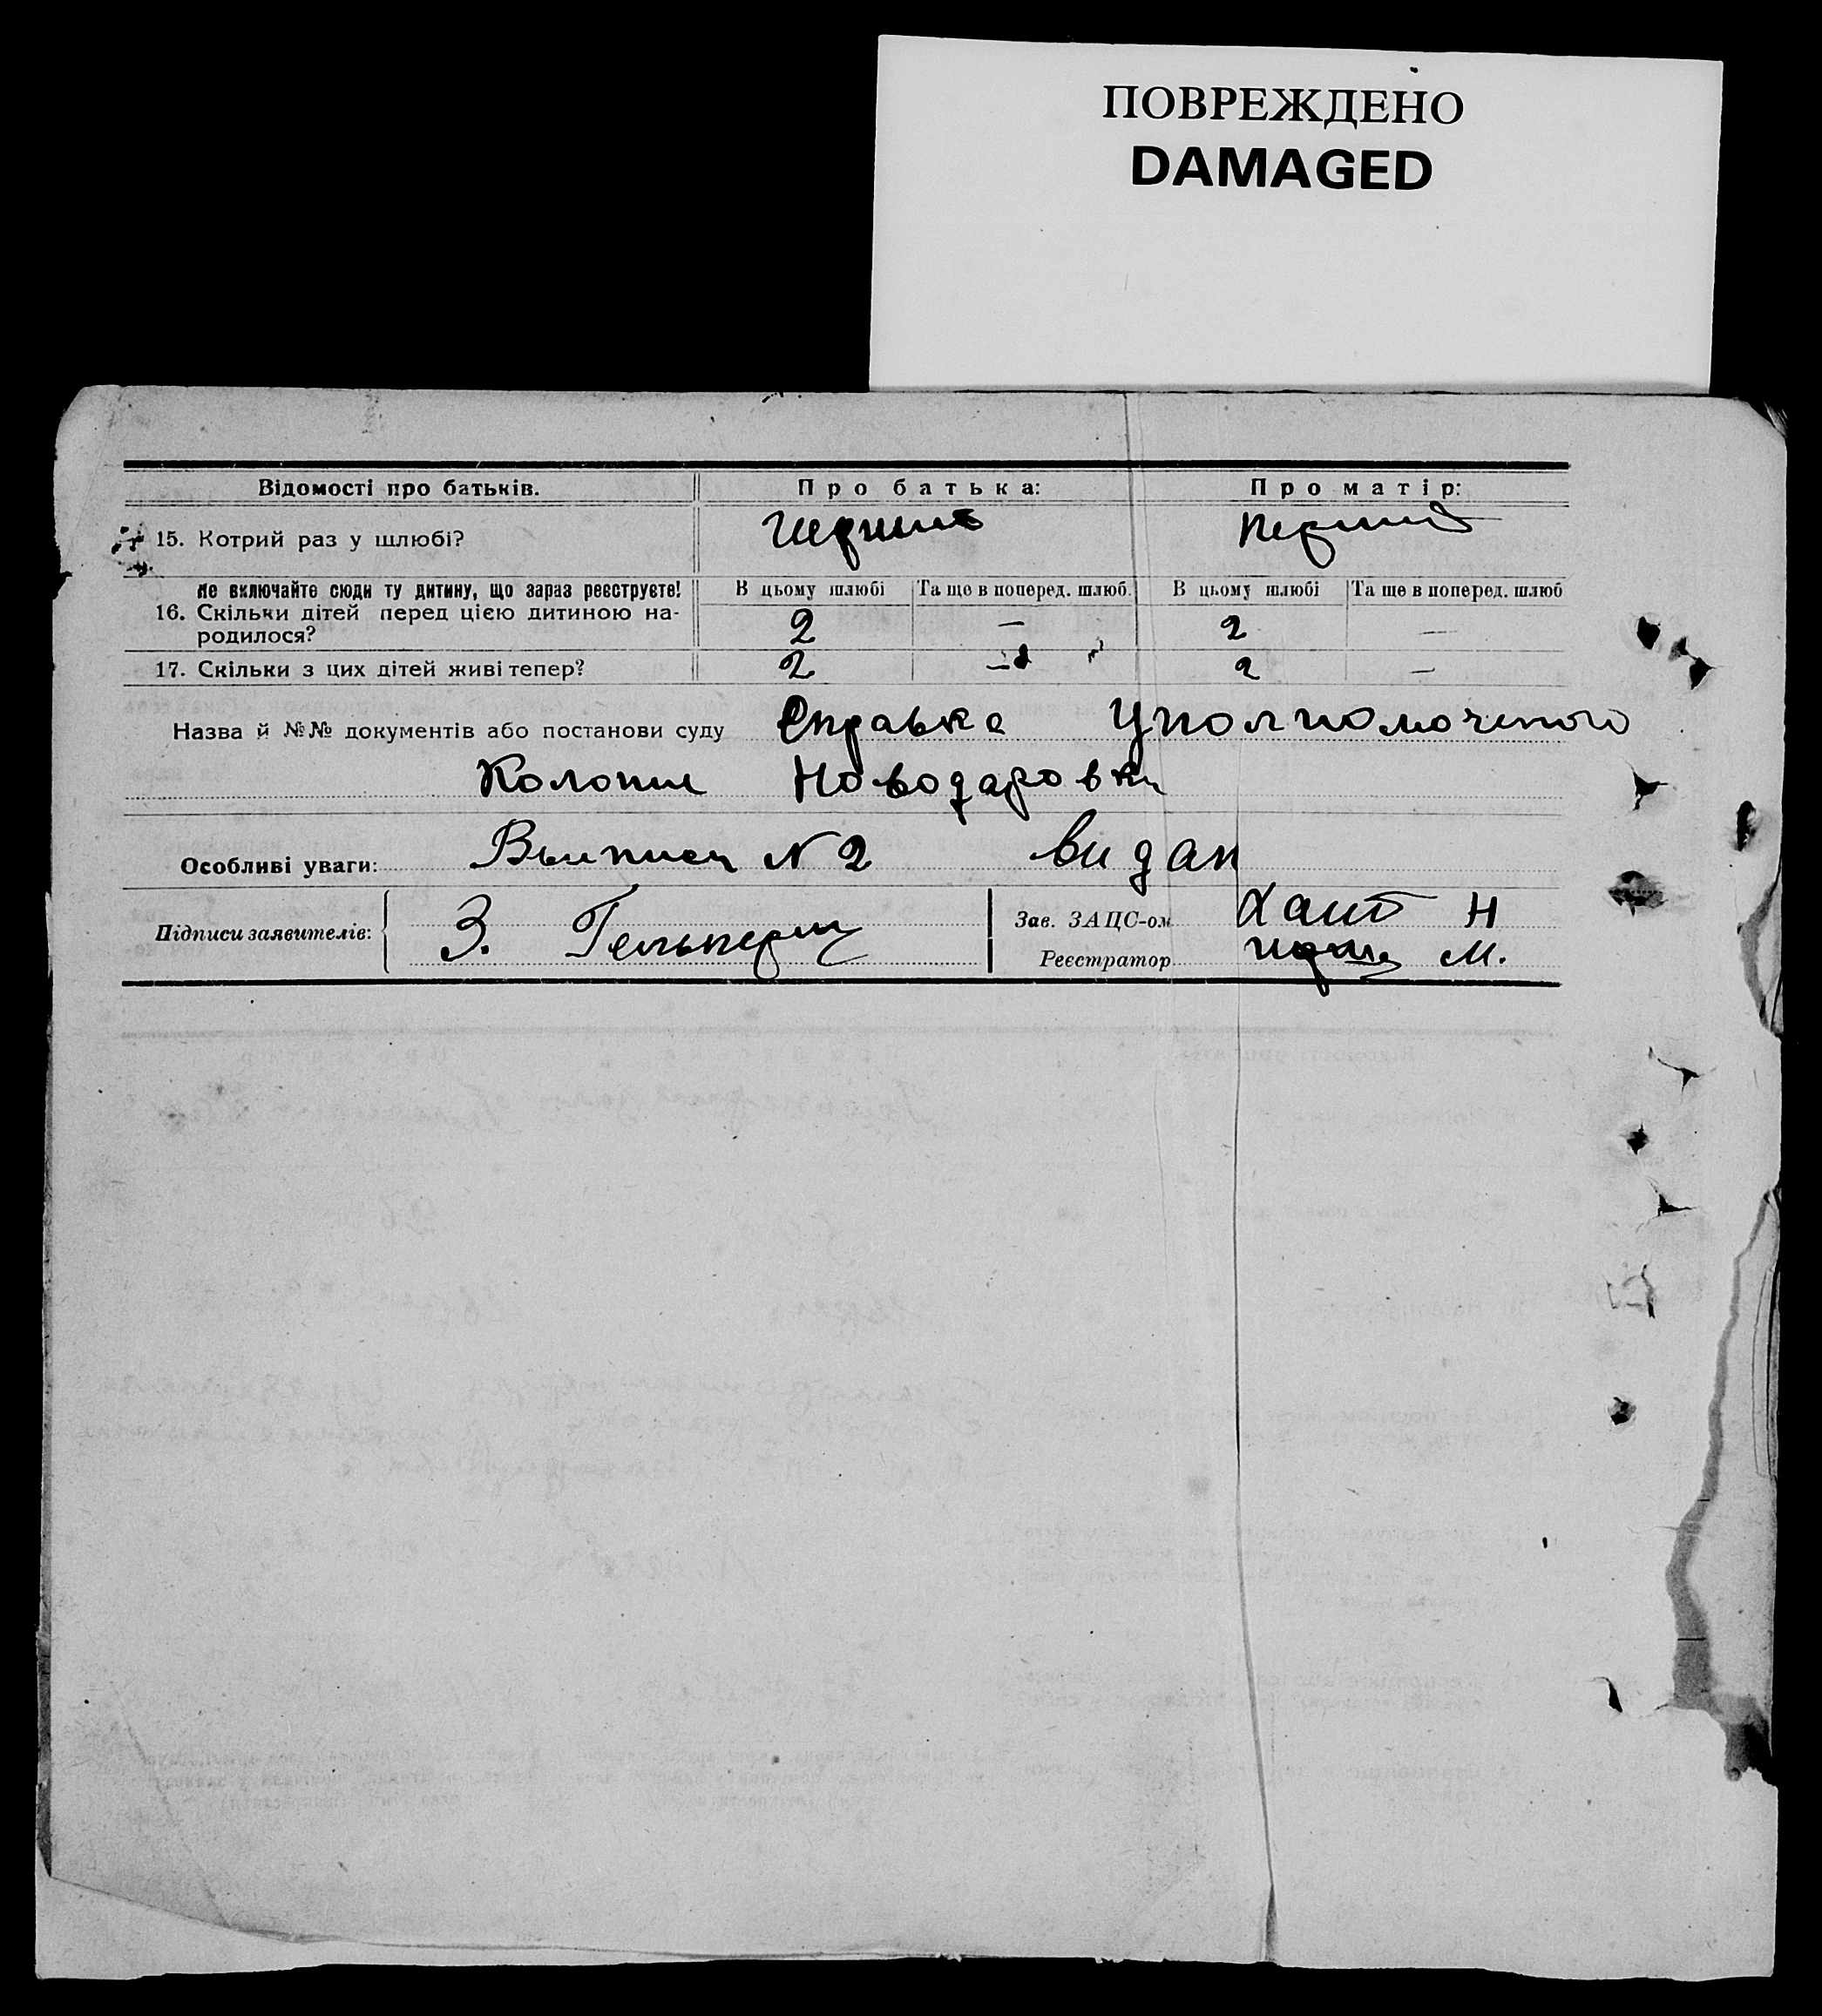 ПОВРЕЖДЕНО
DAMAGED
Відомості про батьків. Про батька: Про матір:
15. Котрий раз у шлюбі? Первий Первий
Не включайте сюди ту дитину, що зараз реєструєте! В цьому шлюбі Та ще в поперед. шлюб. В цьому шлюбі Та ще в поперед. шлюб
16. Скільки дітей перед цією дитиною на-
родилося? 2 — 2 —
17. Скільки з цих дітей живі тепер? 2 — 2 —
Назва й №№ документів або постанови суду Справка Уполномоченого
Колонии Новодаровки
Особливі уваги: Выписи N 2 видан
Підписи заявителів: З. Гельперин Зав. ЗАЦС-ом Хаит Н
Реєстратор М.